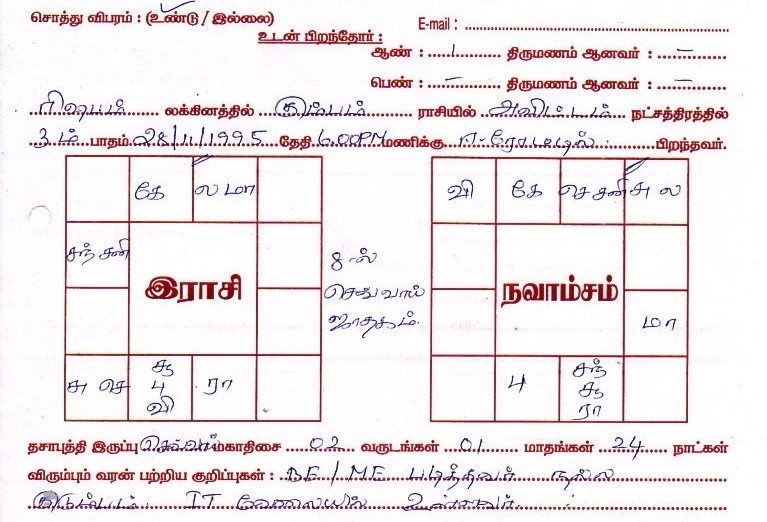 சொத்து விபரம் : (உண்டு / இல்லை) E-mail :
உடன் பிறந்தோர் :
ஆண் : 1 திருமணம் ஆனவர் : –
பெண் : – திருமணம் ஆனவர் : –
ரிஷபம் லக்கினத்தில் கும்பம் ராசியில் அவிட்டம் நட்சத்திரத்தில்
3ம் பாதம் 28/11/1995 தேதி 6.00PM மணிக்கு ஈரோட்டில் பிறந்தவர்.
கே ல மா
சந் சனி
இராசி
சு செ சூ பு வி ரா
8-ல்
செவ்வாய்
ஜாதகம்.
வி கே செ சனி சு ல
நவாம்சம்
மா
பு சந் சூ ரா
தசாபுத்தி இருப்பு செவ்வாய் மகாதிசை 02 வருடங்கள் 01 மாதங்கள் 24 நாட்கள்
விரும்பும் வரன் பற்றிய குறிப்புகள் : BE / ME படித்தவர் நல்ல
குடும்பம் IT வேலையில் உள்ளவர்.